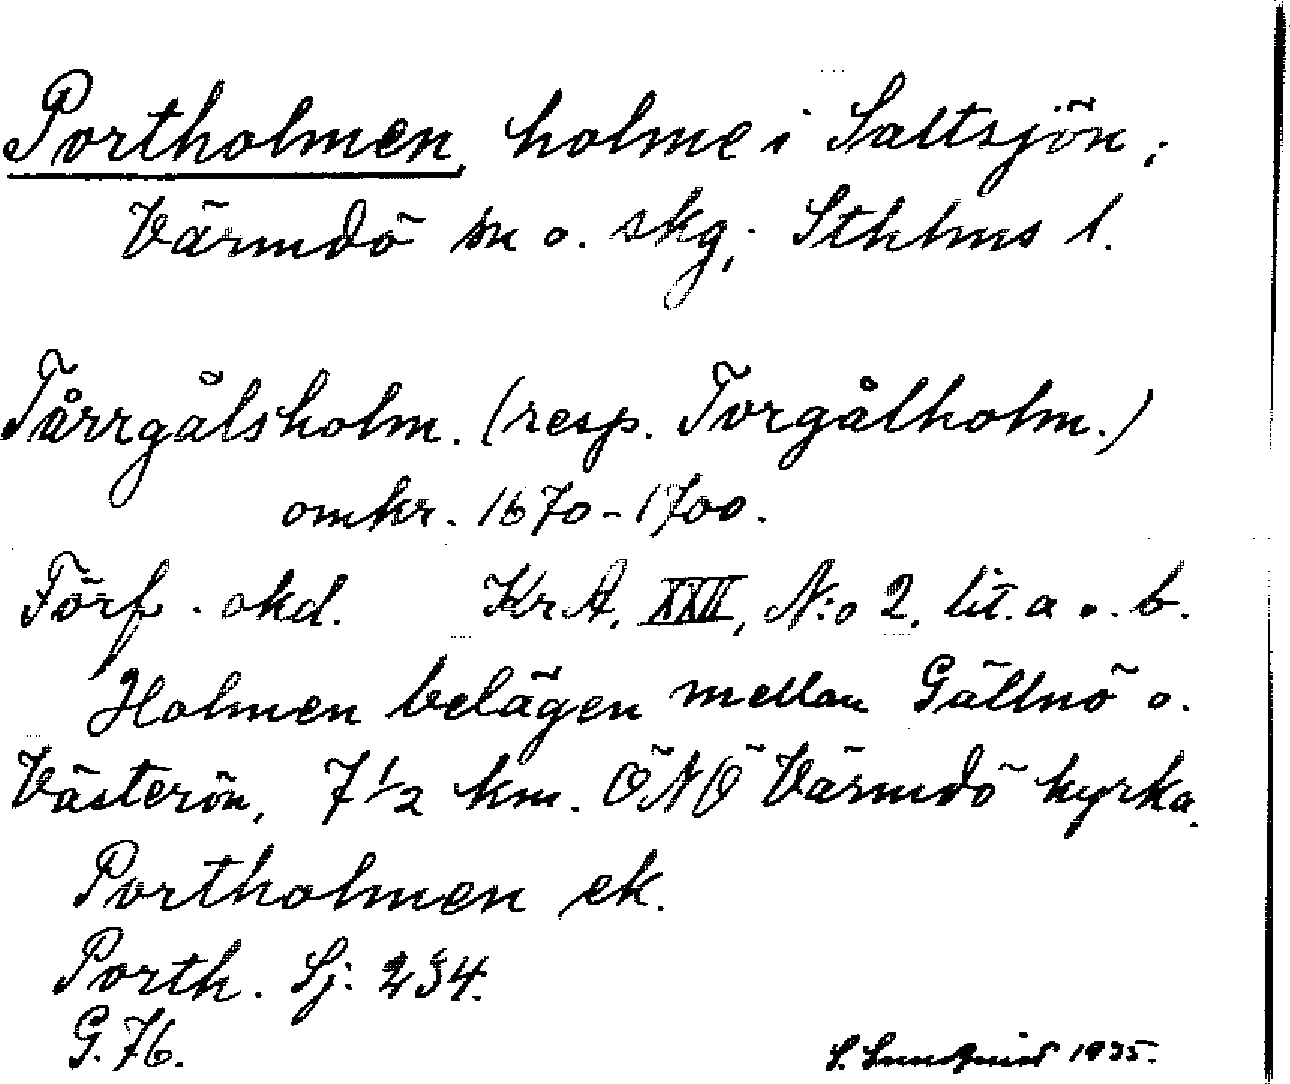 Portholmen, holme i Saltsjön;
Värmdö sn o. skg; Sthlms l.
Tårrgålsholm. (resp. Torgålholm.)
omkr. 1670-1700.
Förf. okd. KrA. XXII, N:o 2. lit. a o. b.
Holmen belägen mellan Gällnö o.
Västerön, 7 1/2 km. ÖNÖ Värmdö kyrka.
Portholmen ek.
Porth. Sj: 234.
G. 76.
S. 1935.